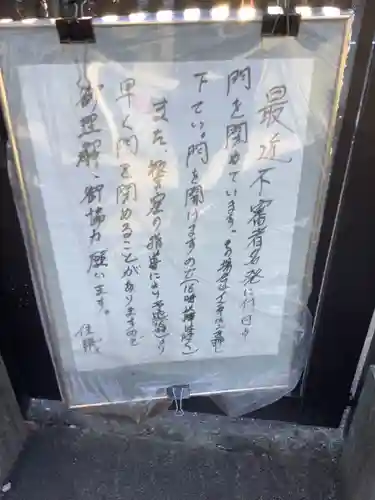 最近不審者多発に付日中
門を閉めています。その場合はインターホンを押し
下さい。門を開けますので(16時以降は除く)
また、警察の指導により予定より
早く門を閉めることがありますので
御理解、御協力願います。
住職